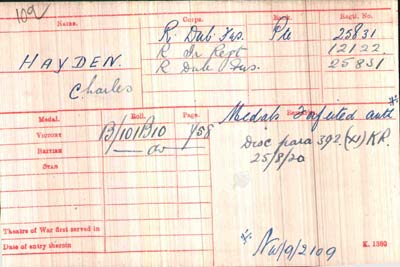 109
Name. Corps. Rank. Regtl. No.
HAYDEN. R. Dub. Fus. Pte 25831
R Ir Regt 12122
Charles R Dub. Fus. 25831
Medal. Roll. Page.
Victory B/101B10 458
British do
Star
Medals Forfeited auth
Disc para 392 (XI) KR.
25/8/20
Theatre of War first served in
Date of entry therein
NW/9/2109
K. 1380